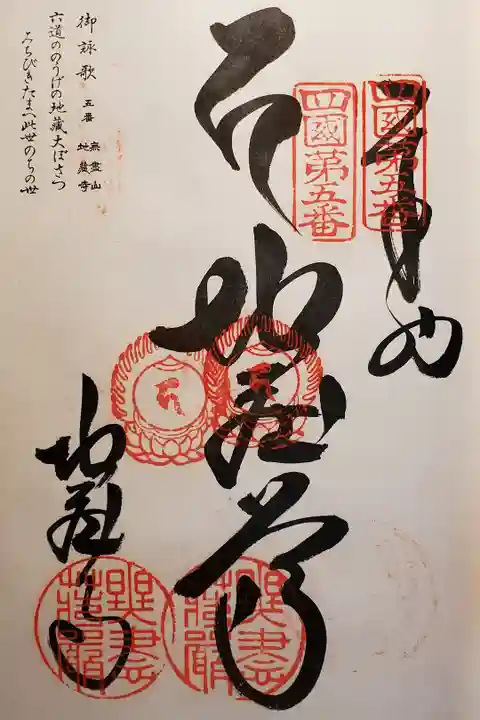 奉納
四國第五番
四國第五番
地蔵尊
地蔵寺
無盡莊嚴
無盡莊嚴
御詠歌 五番 無盡山 地藏寺
六道ののうげの地藏大ぼさつ
みちびきたまへ此世のちの世